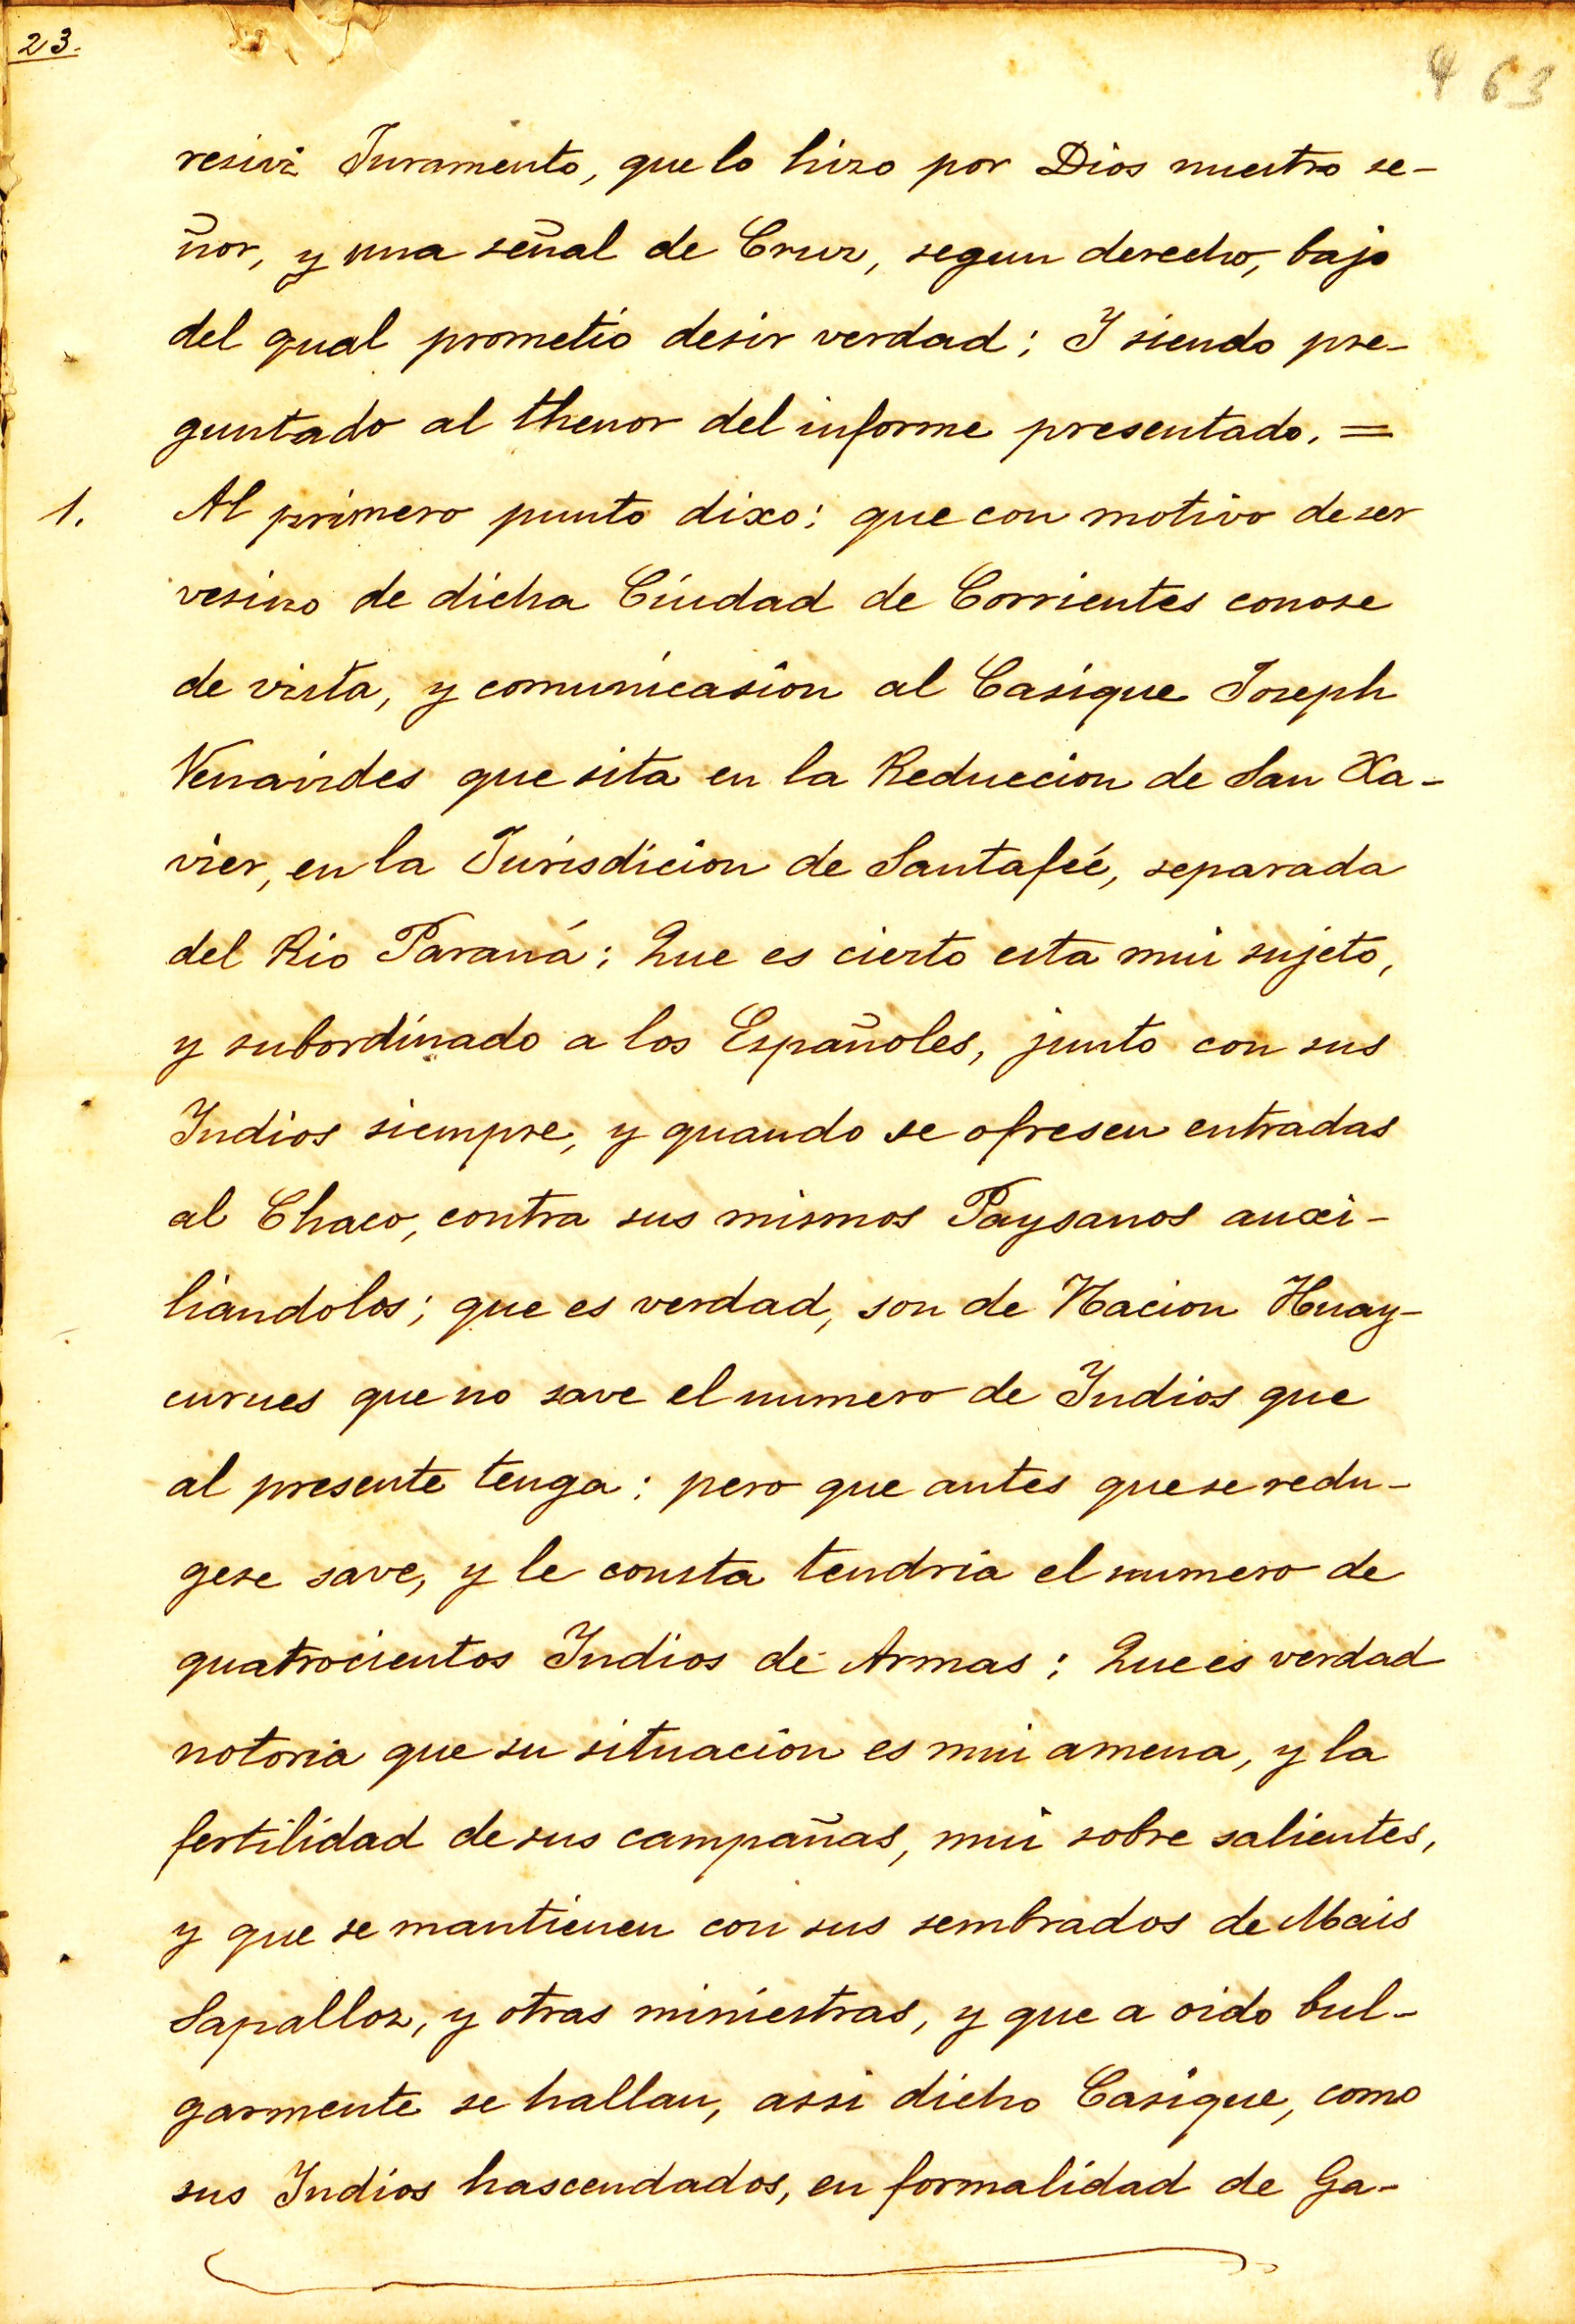 23.
463
resivi Juramento, que lo hizo por Dios nuestro se-
ñor, y una señal de Cruz, segun derecho, bajo
del qual prometio desir verdad; I siendo pre-
guntado al thenor del informe presentado. =
1. Al primero punto dixo: que con motivo de ser
vesino de dicha Ciudad de Corrientes conose
de vista, y comunicasion al Casique Joseph
que sita en la Reduccion de San Xa-
vier, en la Jurisdicion de Santafeé, separada
del Rio Paraná; Que es cierto esta mui sujeto,
y subordinado a los Españoles, junto con sus
Indios siempre, y quando se ofresen entradas
al Chaco, contra sus mismos Paysanos auxi-
liandolos; que es verdad, son de Nacion Huay-
curues que no save el numero de Indios que
al presente tenga: pero que antes que se redu-
gese save, y le consta tendria el numero de
quatrocientos Indios de Armas; Que es verdad
notoria que su situacion es mui amena, y la
fertilidad de sus campañas, mui sobre salientes,
y que se mantienen con sus sembrados de Mais
Sapalloz, y otras miniestras, y que a oido bul-
garmente se hallan, assi dicho Casique, como
sus Indios hascendados, en formalidad de Ga-